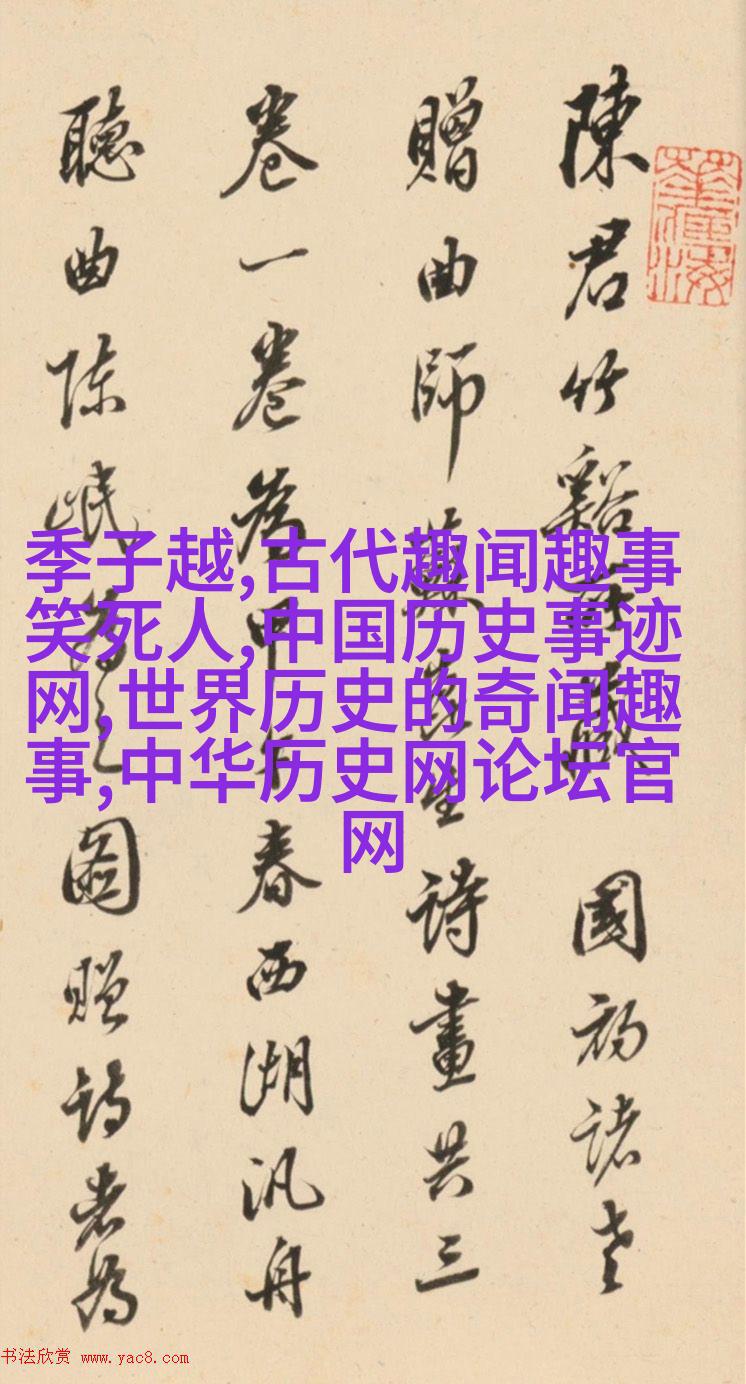 陳君竹谿所藏 國初諸老
贈曲師蘇崑生詩畫共三
卷一卷為甲午春西湖汎舟
聽曲陳岷為之圖贈詩者為
季子越,古代趣闻趣事
笑死人,中国历史事迹
网,世界历史的奇闻趣
事,中华历史网论坛官
网
书法欣赏 www.yac8.com